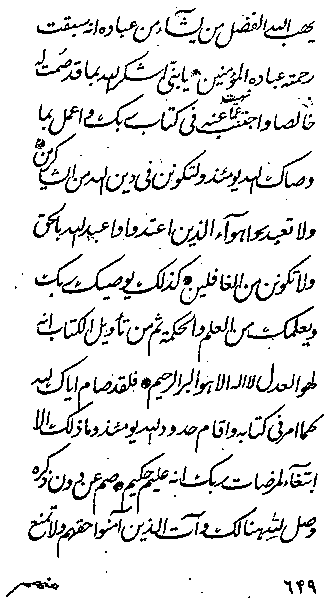 يهب الله الفضل من يشآء من عباده انه سبقت
رحمته عباده المؤمنين يا بني اشكر الله بما قد صمت له
خالصا واجتنب عما نهيت عنه في كتاب ربك واعمل بما
وصاك الله يومئذ ولتكونن في دين الله من الشاكرين
ولا تعبد هوآء الذين اعتدوا واعبد الله بالحق
ولا تكونن من الغافلين كذلك يوصيك ربك
ويعلمك من العلم والحكمة ثم من تأويل الكتاب انه
لهو العدل لا اله الا هو البر الرحيم فلقد صام اباك لله
كما امر في كتابه واقام حدود الله يومئذ وما ذلك الا
ابتغآء لمرضات ربك انه عليم حكيم صم عن دون ذكره
وصل لله هنالك وآت الذين آمنوا حقهم ولا تمنع
٦٤٩